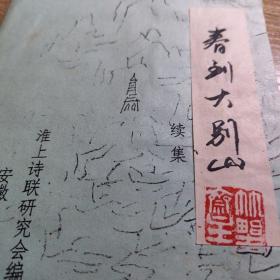 春到大别山
续集
淮上诗联研究会编
安徽